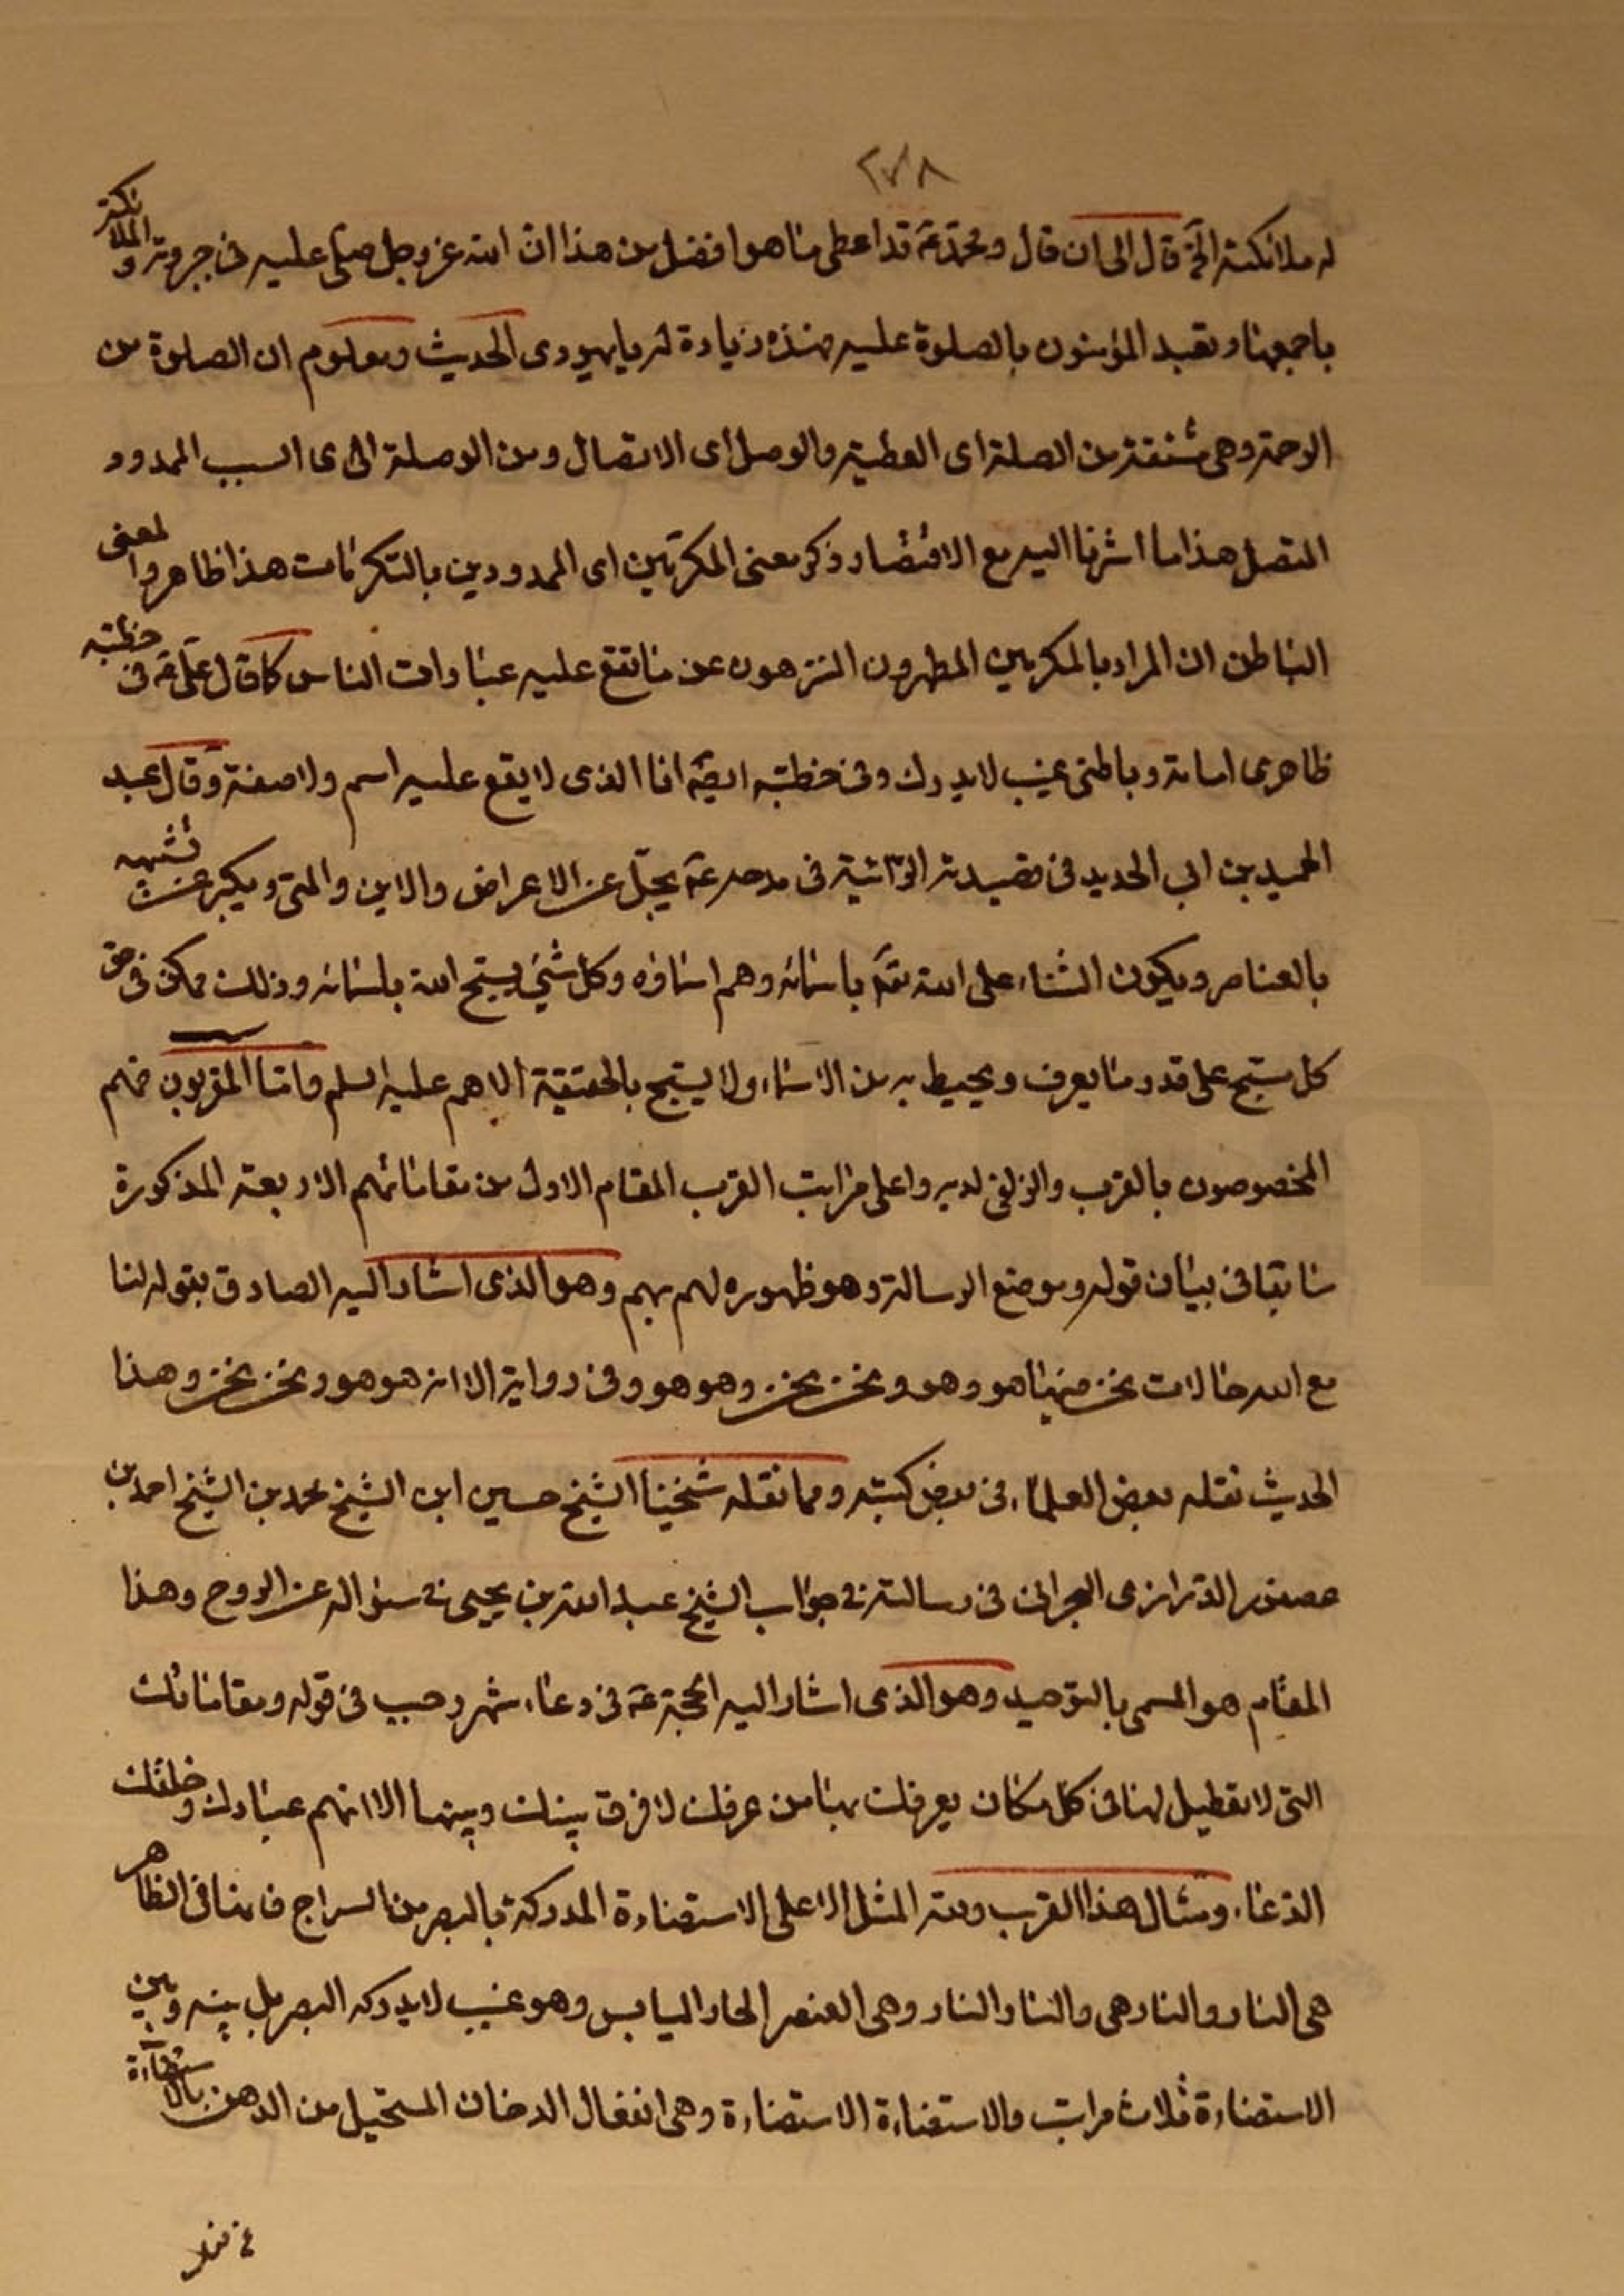 ٢٧٨
له ملائكته الخ قال الى ان قال ومحمد ع قد اعطى ما هو افضل من هذا ان الله عز وجل صلى عليه فى جبروته والملائكة
باجمعها وتعبد المؤمنون بالصلوة عليه فهذه زيادة له يا يهودى الحديث ومعلوم ان الصلوة من
الرحمة وهى مشتقة من الصلة اى العطية والوصل اى الاتصال ومن الوصلة اى السبب الممدود
المتصل هذا ما اشرنا اليه مع الاقتصار وذكر معنى المكرمين اى الممدودين بالتكرمات هذا ظاهر والمعنى
الباطن ان المراد بالمكرمين المطهرون المنزهون عن ما تقع عليه عبارات الناس كما قال على ع فى خطبته
ظاهرى امامة وباطنى غيب لا يدرك وفى خطبته ايضا انا الذى لا يقع عليه اسم ولا صفة وقال عبد
الحميد بن ابي الحديد فى قصيدته الرائية فى مدحه ع يجل عن الاعراض والاين والمتى ويكبر عن تشبيه
بالعناصر ويكون الثناء على الله تع باسمائه وهم اسماؤه وكل شئ يسبح الله باسمائه وذلك ممكن فى حق
كل مسبح على قدر ما يعرف ويحيط به من الاسماء ولا يسبح بالحقيقة الا هم عليه السلم واما المقربون فهم
المخصوصون بالقرب والزلفى لديه واعلى مراتب القرب المقام الاول من مقاماتهم الاربعة المذكورة
سابقا فى بيان قوله وموضع الرسالة وهو ظهوره لهم بهم وهو الذى اشار اليه الصادق بقوله لنا
مع الله حالات نحن فيها هو وهو نحن ونحن نحن وهو هو وفى رواية الا انه هو هو ونحن نحن وهذا
الحديث نقله بعض العلماء فى بعض كتبه ومما نقله شيخنا الشيخ حسين ابن الشيخ محمد بن الشيخ احمد بن
عصفور الدرازى البحرانى فى رسالته فى جواب الشيخ عبد الله بن يحيى فى سؤاله عن الروح وهذا
المقام هو المسمى بالتوحيد وهو الذى اشار اليه الحجة ع فى دعاء شهر رجب فى قوله ومقاماتك
التى لا تعطيل لها فى كل مكان يعرفك بها من عرفك لا فرق بينك وبينها الا انهم عبادك وخلقك
الدعاء ومثال هذا القرب ولله المثل الاعلى الاستضاءة المدركة بالبصر من السراج فانها فى الظاهر
هى النار والنار هى والنار النار وهى العنصر الحار اليابس وهو غيب لا يدركه البصر بل بينه وبين
الاستضاءة ثلاث مراتب والاستضاءة الاستضاءة وهى انفعال الدخان المستحيل من الدهن بالاستضاءة